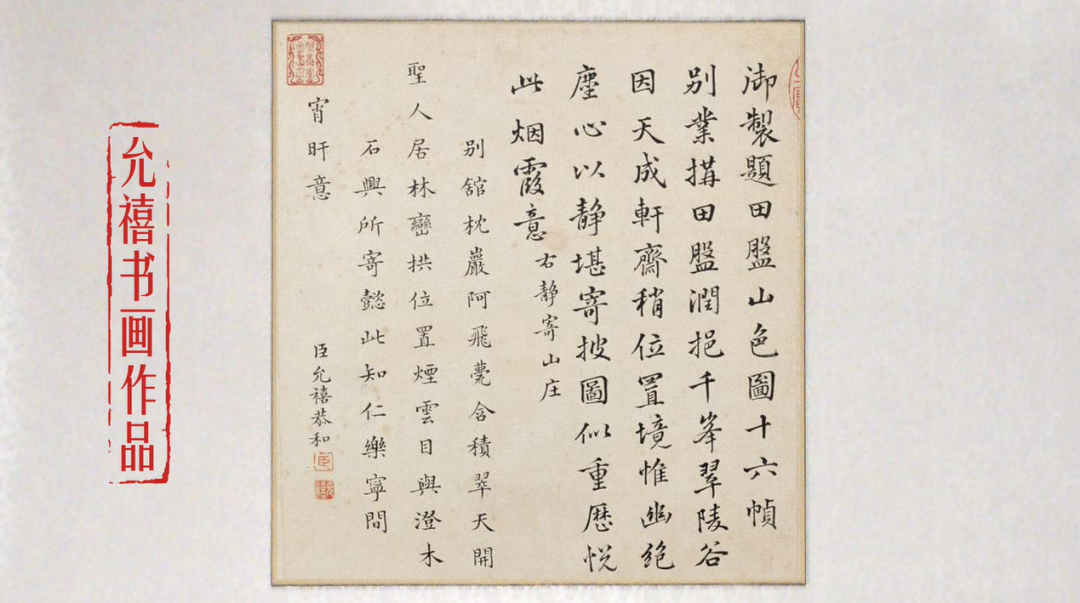 御製題田盤山色圖十六幀
别業搆田盤潤挹千峯翠陵谷
因天成軒齋稍位置境惟幽絶
塵心以静堪寄披圖似重歷悦
此烟霞意
右静寄山庄
别舘枕巖阿飛甍含積翠天開
聖人居林巒拱位置煙雲目與澄木
石興所寄懿此知仁樂寧間
宵旰意
臣允禧恭和
允禧书画作品